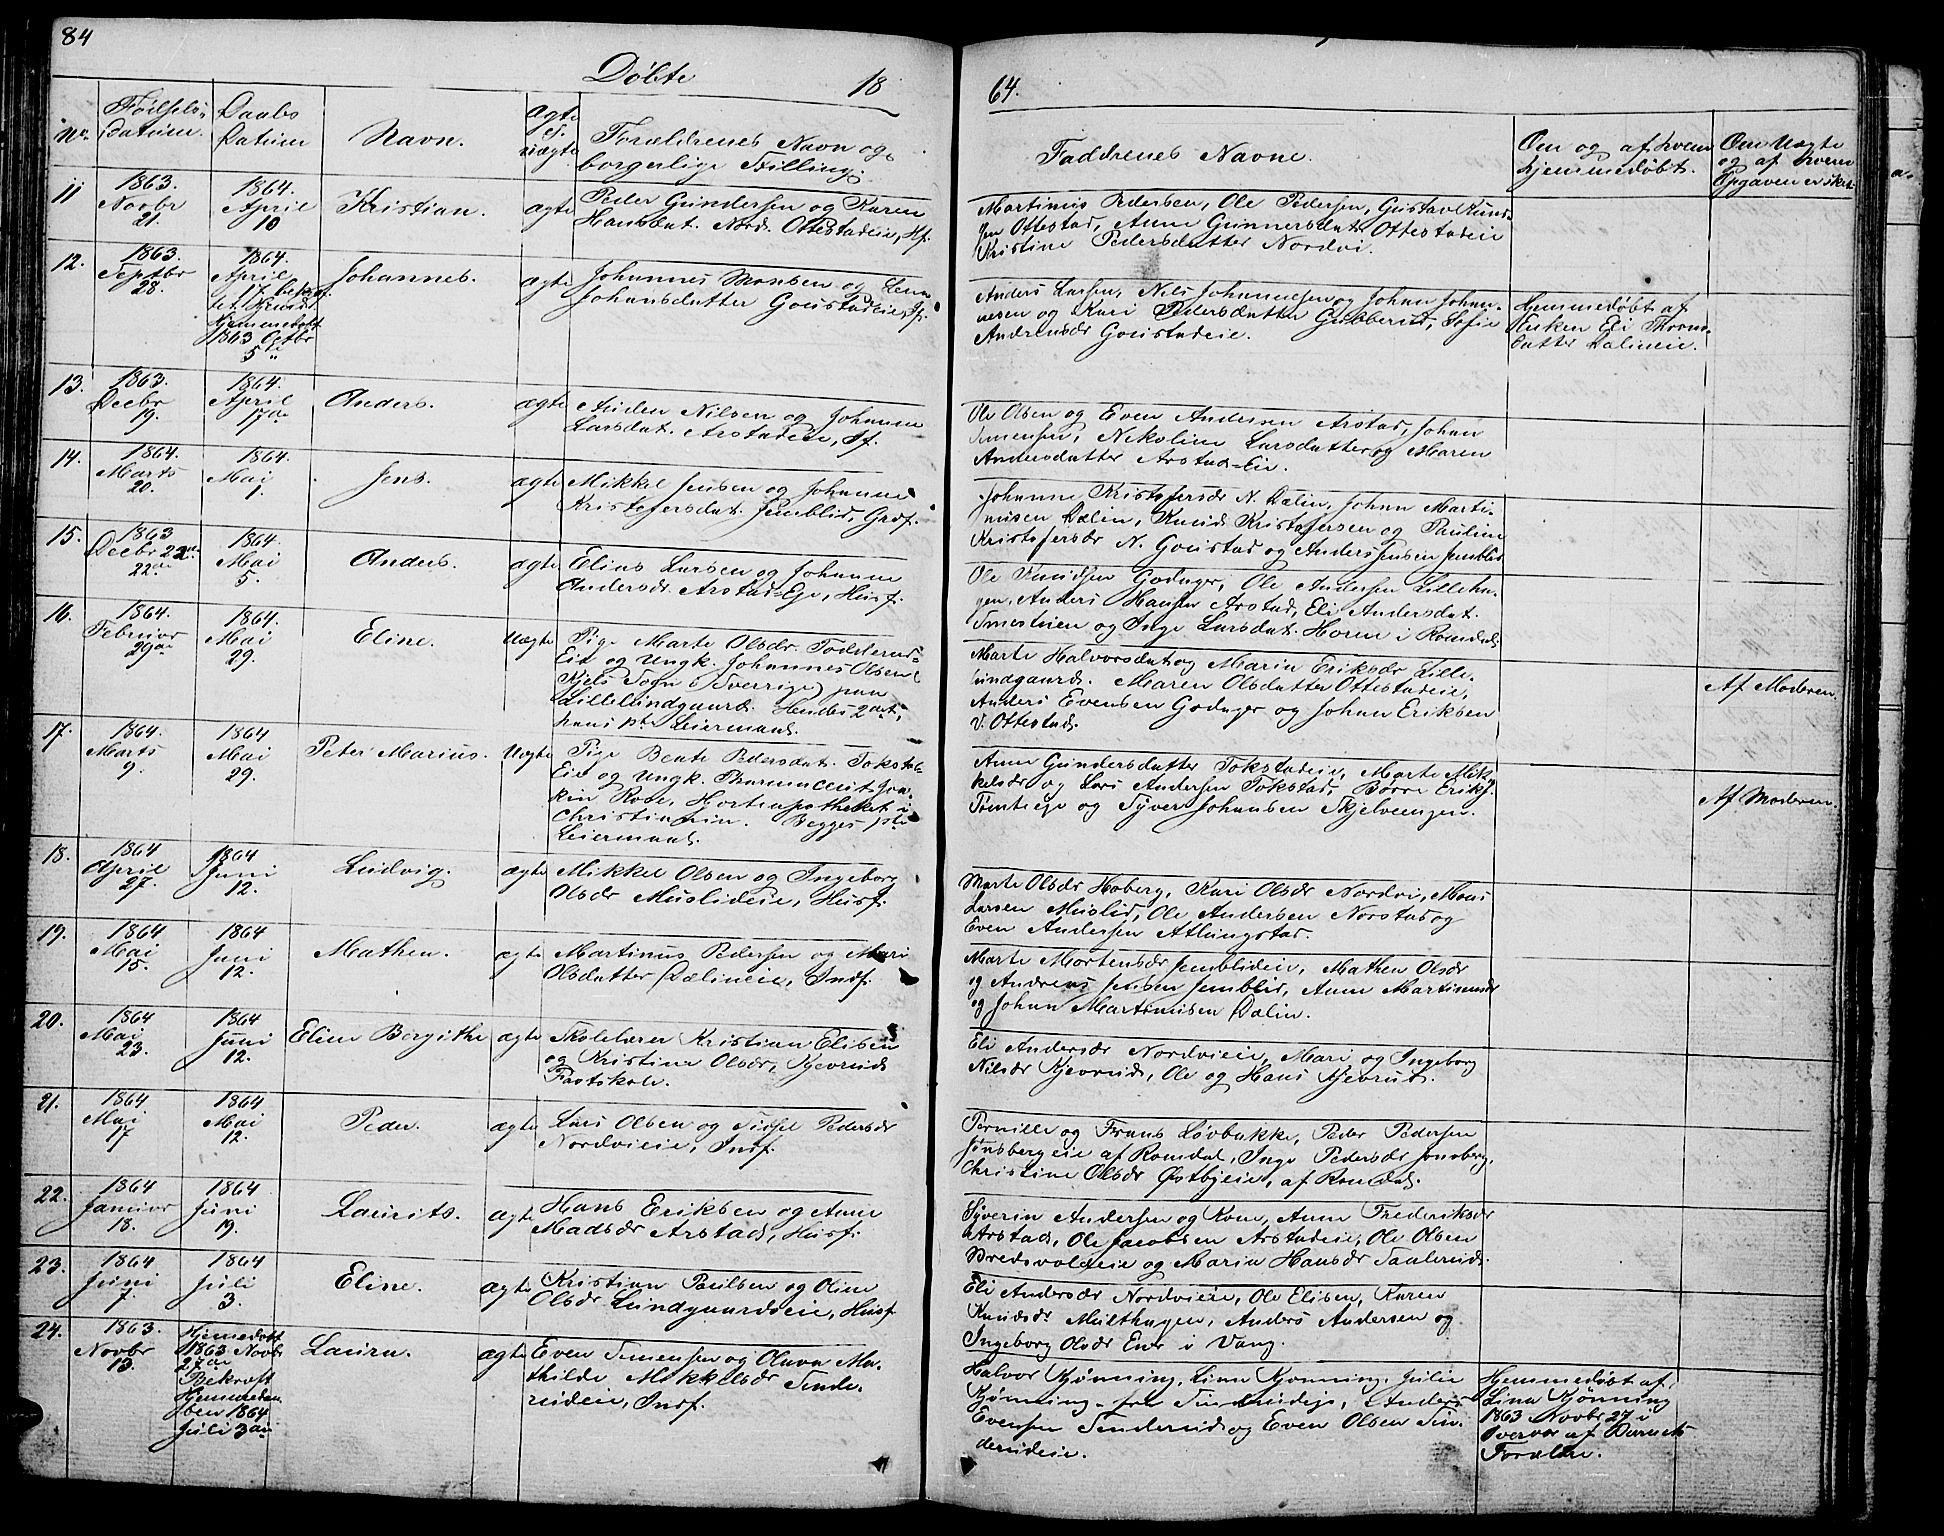 84
Døbte 18
64.
No. Føilsels-Datum. Daabs Datum Navn. Ægte el. uægte Forældrenes Navn og borgerlige Stilling. Faddrenes Navne. Om og af hvem hjemmedøbt. Om Uægte og af hvem Opgaven er sket.
11 1863. Novbr 21. 1864. April 10 Kristian. ægte
Peder Gundersen og Karen
Hansdat. Nord. Ottestadeie, Hf.
Martinus Pedersen, Ole Pedersen, Gustav Knud-
sen Ottestad, Anne Gunnersdat. Ottestadeie
Kristine Pedersdatter Nordvi.
12. 1863. Septbr 28. 1864. April 17. Hjemmedøbt 1863 Octbr 5te Johannes. ægte
Johannes Monsen og
Johansdatter Goustadeie,
Anders Larsen, Nils Johannesen og Johan Johan-
nesen og Kari Pedersdatter Gubberud, Sofie
Andreasdr Goustadeie.
Hjemmedøbt af
Enken Eli Thorns-
datter Dælineie.
13. 1863. Decbr 19. 1864. April 17de Anders. ægte
Auden Nilsen og Johanne
Larsdat. Arstadeie, If.
Ole Olsen og Even Andersen Arstad, Johan
Simensen, Nikoline Larsdatter og Maren
Andersdatter Arstad-Eie.
14. 1864. Marts 20. 1864. Mai 1. Jens. ægte
Mikkel Jensen og Johanne
Kristofersdat. Jemblid, Grdf.
Johanne Kristofersdr N. Dælin, Johan Marti-
nusen Dælin, Knud Kristofersen og Pauline
Kristofersdr N. Goustad og Anders Jensen Jemblid
15. 1863 Decbr 22de 22de 1864. Mai 5. Anders. ægte
Elius Larsen og Johanne
Andersdr. Arstad-Eje, Husf.
Ole Knudsen Godager, Ole Andersen Lilleha-
gen, Anders Hansen Arstad, Eli Andersdat.
Smestuen og Inge Larsdat. Horne i Romedal
16. 1864. Februar 29de 1864. Mai 29. Eline. Uægte
Pige Marte Olsdr. Toddterud-
Eie og Ungk. Johannes Olsen
Njels Sogn (Sverrige) paa
Lillelundgaard. Hendes 2det,
hans 1ste Leiermaal.
Marte Halvorsdat og Maria Eriksdr Lille-
lundgaard. Maren Olsdatter Ottestadeie,
Anders Evensen Godager og Johan Eriksen
V. Ottestad.
Af Moderen.
17. 1864. Marts 9. 1864 Mai 29. Peter Marius. Uægte
Pige Beate Pedersdat. Tokstad-
Eie og Ungk. Pharmaceut Joa-
kin Rose, Hjorteapotheket i
Christiania. Begges 1ste
Leiermaal.
Anne Gundersdatter Tokstadeie, Marte Mik-
kelsdr og Lars Andersen Tokstad, Børre Eriks.
Tomteeie og Syver Johansen Skjelvengen.
Af Moderen.
18. 1864 April 27. 1864 Juni 12. Ludvig. ægte
Mikkel Olsen og Ingeborg
Olsdr Muslideie, Husf.
Marte Olsdr Hoberg, Kari Olsdr Nordvi, Mons
Larsen Muslid, Ole Andersen Norstad og
Even Andersen Atlungstad.
19. 1864 Mai 15. 1864 Juni 12. Mathea. ægte
Martinus Pedersen og Mari
Olsdatter Dælineie, Indf.
Marte Mortensdr Jemblideie, Mathea Olsdr
og Andreas Jensen Jemblid, Anne Martinusdr
og Johan Martinusen Dælin.
20. 1864 Mai 23. 1864 Juni 12. Eline Bergithe ægte
Skolelærer Kristian Elisen
og Kristine Olsdr, Kjevruds
Fastskole.
Eli Andersdr Nordvieie, Mari og Ingeborg
Nilsdr Kjevrud, Ole og Hans Kjevrud.
21. 1864 Mai 17 1864 Mai 12. Peder. ægte
Lars Olsen og Sidsel Pedersdr
Nordvieie, Indf.
Pernille og Frans Løvbakke, Peder Pedersen
Jønsbergeie af Romdal, Inge Pedersdr Jønsberg,
Christine Olsdr Østbyeie, af Romdal.
22. 1864 Januar 18. 1864 Juni 19. Laurits. ægte
Hans Eriksen og Anne
Madsdr Arstad, Husf.
Syverin Andersen og Kone, Anne Frederiksdr
Arstad, Ole Jacobsen Arstadeie, Ole Olsen
Bredvoldeie og Maria Hansdr Saulerud.
23. 1864 Juni 7. 1864 Juli 3. Eline. ægte
Kristian Paulsen og Oline
Olsdr Lundgaardseie, Husf.
Eli Andersdr Nordvieie, Ole Elisen, Karen
Knudsdr Malthagen, Anders Andersen og
Ingeborg Olsdr Ener i Vang.
24. 1863. Novbr 13. Hjemedøbt 1863 Novbr 27de Bekræft. Hjemmedaaben 1864 Juli 3die Laura. ægte
Even Simensen og Olava Ma-
thilde Mikkelsdr Sinde-
rudeie, Indf.
Halvor Kjønning, Lina Kjønning, Julie
Kjønning fra Sinderudeje, Anders
Evensen Sinderud og Even Olsen Sin-
derudeie.
Hjemmedøbt af
Lina Kjønning
1863 Novbr 27 i
Overvær af Barnets
Forældre.